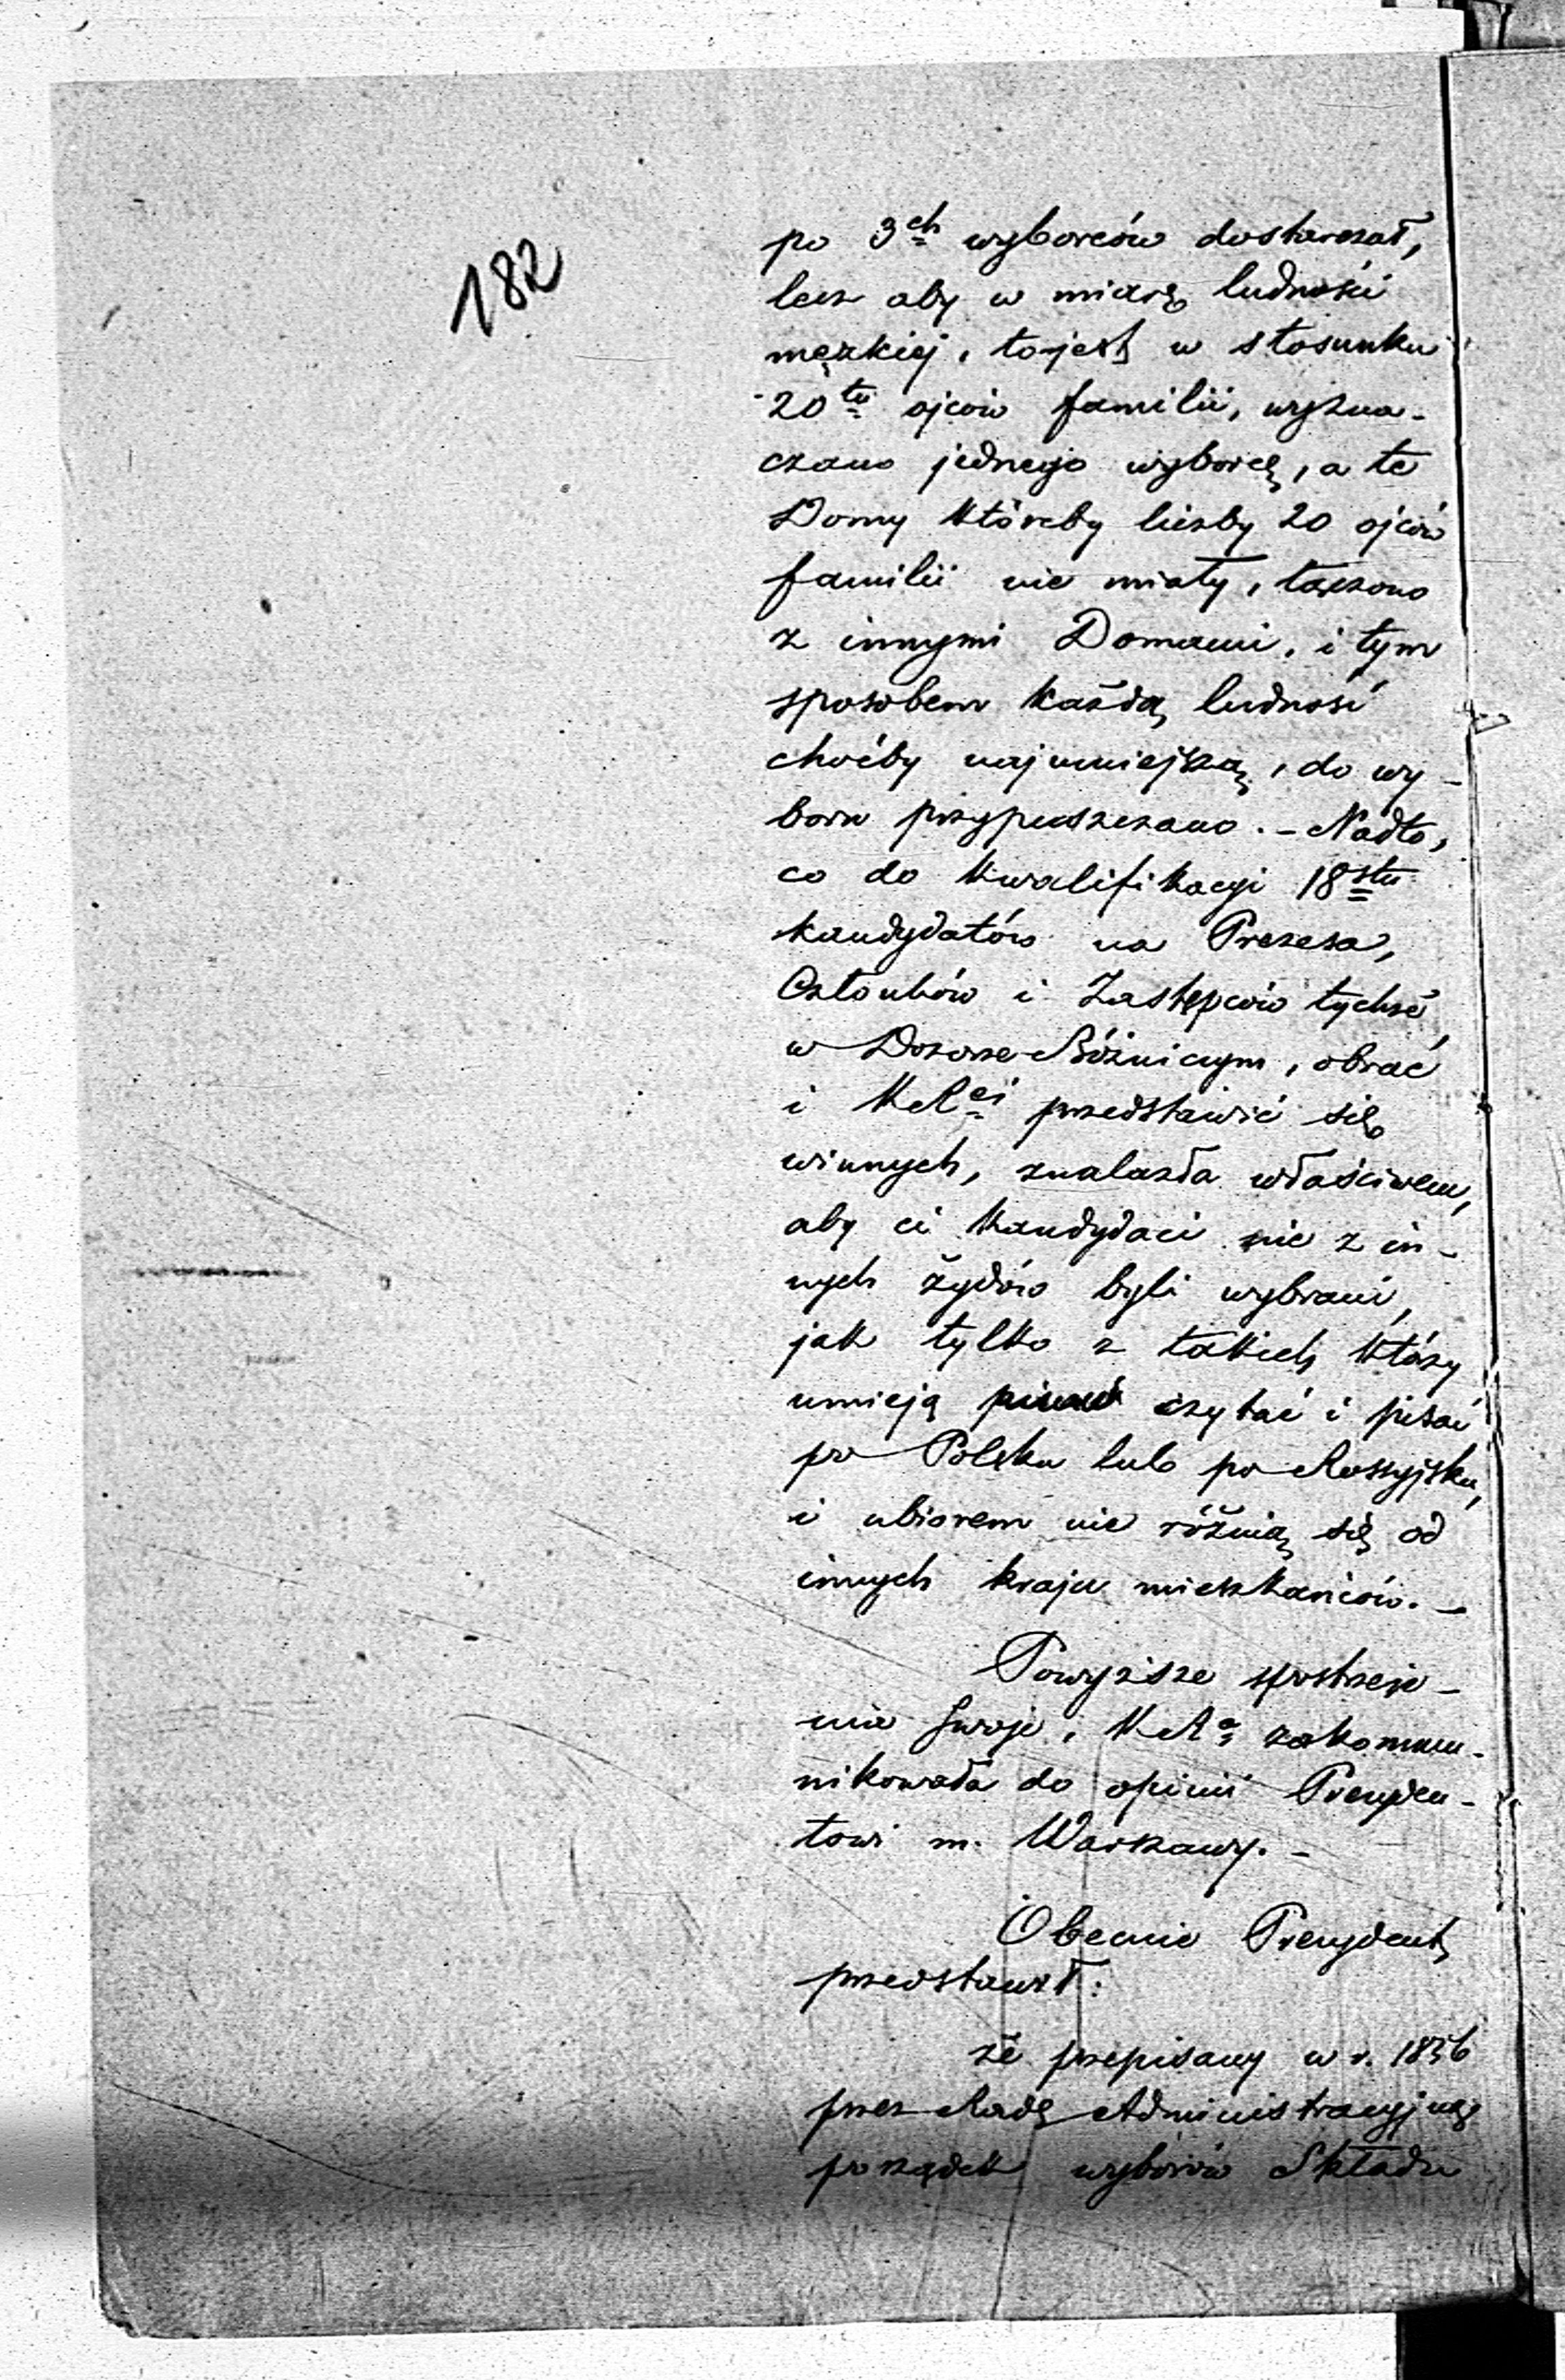 182
po 3ch wyborców dostarczał,
lecz aby w miarę ludności
męzkiej, to jest w stosunku
20tu ojców familii, wyzna-
czano jednego wyborcę, a te
Domy któreby liczby 20 ojców
familii nie miały, łączono
z innymi Domami, i tym
sposobem każdą ludność
choćby najmniejszą, do wy-
boru przypuszczano. - Nadto,
co do kwalifikacyi 18stu
kandydatów na Prezesa,
Członków i Zastępców tychże
w Dozorze Bóżniczym, obrać
i KRei przedstawić się
winnych, znalazła właściwem,
aby ci kandydaci nie z in-
nych żydów byli wybrani,
jak tylko z takich którzy
umieją czytać i pisać
po Polsku lub po Rossyjsku,
i ubiorem nie różnią się od
innych kraju mieszkańców. -
Powyższe spostrzeże-
nia swoje, KRa zakommu-
nikowała do opinii Prezyden-
towi m. Warszawy. -
Obecnie Prezydent
przedstawił:
że przepisany w r. 1856
przez Radę Administracyjną
porządek wyborów Składu